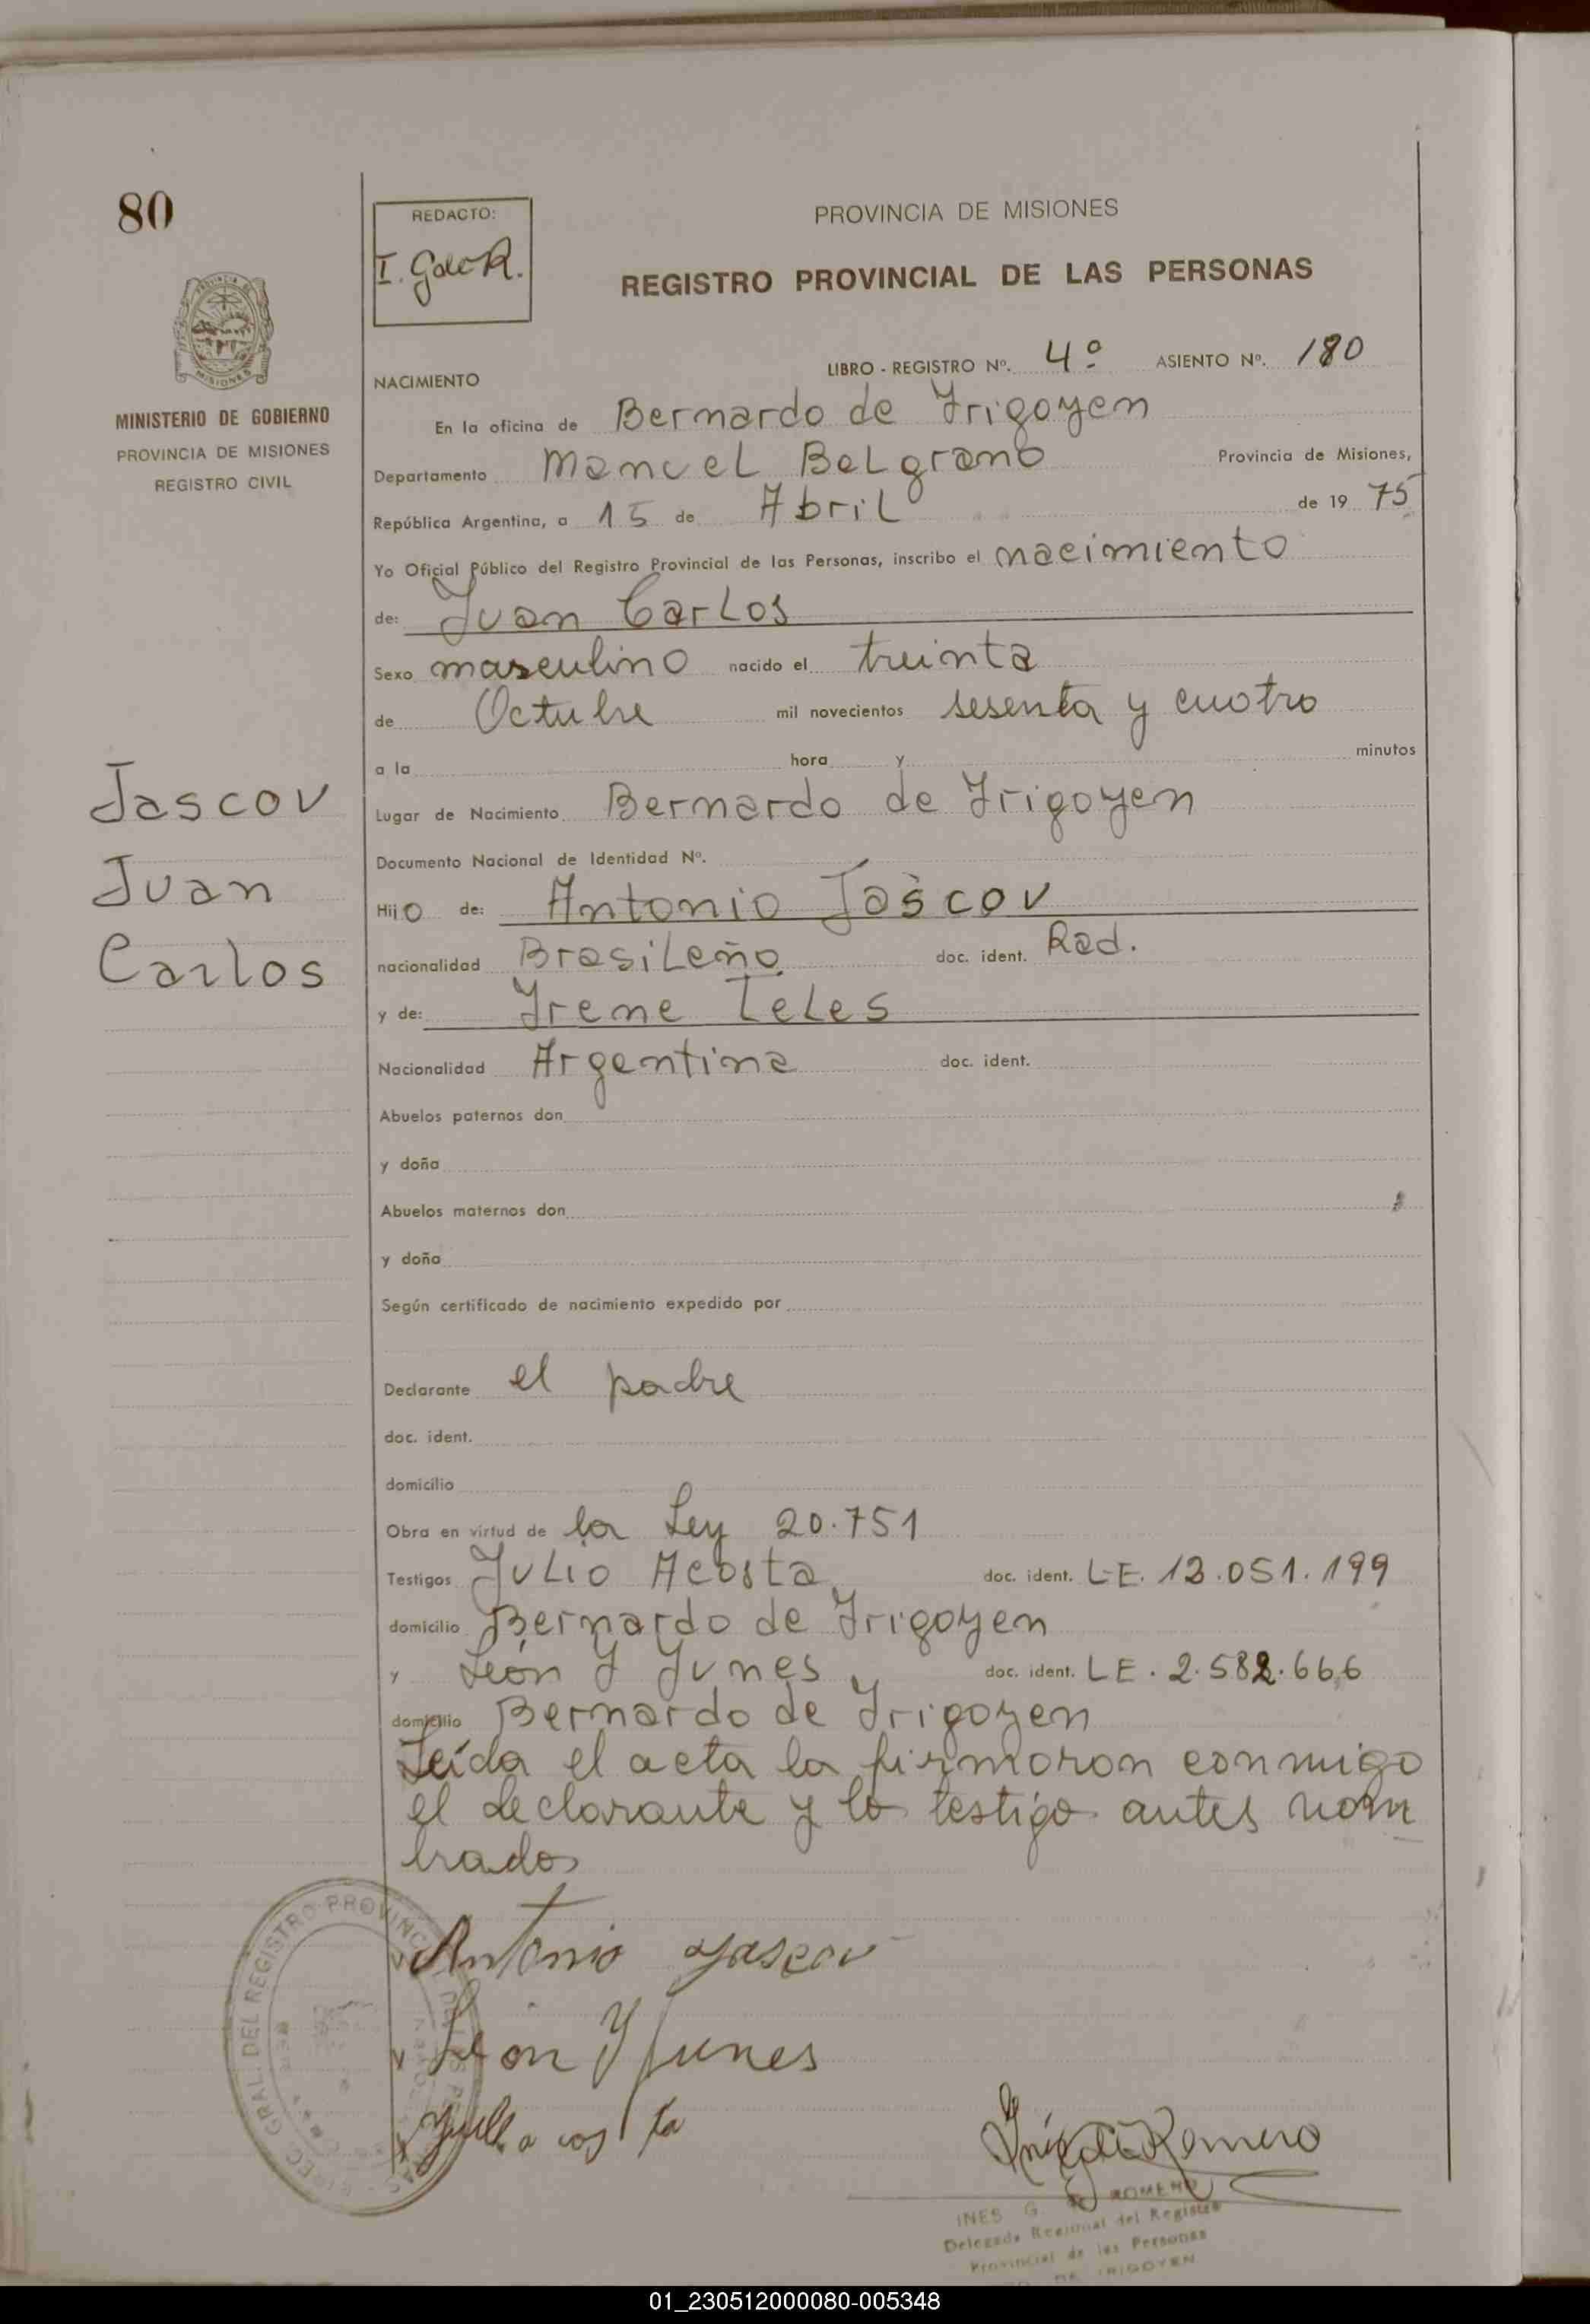 80
REDACTO:
PROVINCIA DE MISIONES
REGISTRO PROVINCIAL DE LAS PERSONAS
MISIONES
MINISTERIO DE GOBIERNO
PROVINCIA DE MISIONES
REGISTRO CIVIL
NACIMIENTO
LIBRO - REGISTRO Nº. 4º ASIENTO Nº. 180
En la oficina de Bernardo de Irigoyen
Departamento Manuel Belgrano Provincia de Misiones,
República Argentina, a 15 de Abril de 19 75
Yo Oficial Público del Registro Provincial de las Personas, inscribo el nacimiento
de: Juan Carlos
Sexo masculino nacido el treinta
de Octubre mil novecientos sesenta y cuatro
a la hora y minutos
Jascov
Juan
Carlos
Lugar de Nacimiento Bernardo de Irigoyen
Documento Nacional de Identidad Nº.
Hijo de: Antonio Jascov
nacionalidad Brasileño doc. ident. Rad.
y de: Irene Teles
Nacionalidad Argentina doc. ident.
Abuelos paternos don
y doña
Abuelos maternos don
y doña
Según certificado de nacimiento expedido por
Declarante el padre
doc. ident.
domicilio
Obra en virtud de la Ley 20.751
Testigos Julio Acosta, doc. ident. L.E. 13.051.199
domicilio Bernardo de Irigoyen
y León Y Junes, doc. ident. L E. 2.582.666
domicilio Bernardo de Irigoyen
Leída el acta la firmaron conmigo
el declarante y lo testigo antes nom
brados
Antonio Jascov
León Y Junes
INES G. DE ROMERO
Delegada Regional del Registro
Provincial de las Personas
DE IRIGOYEN
01_230512000080-005348